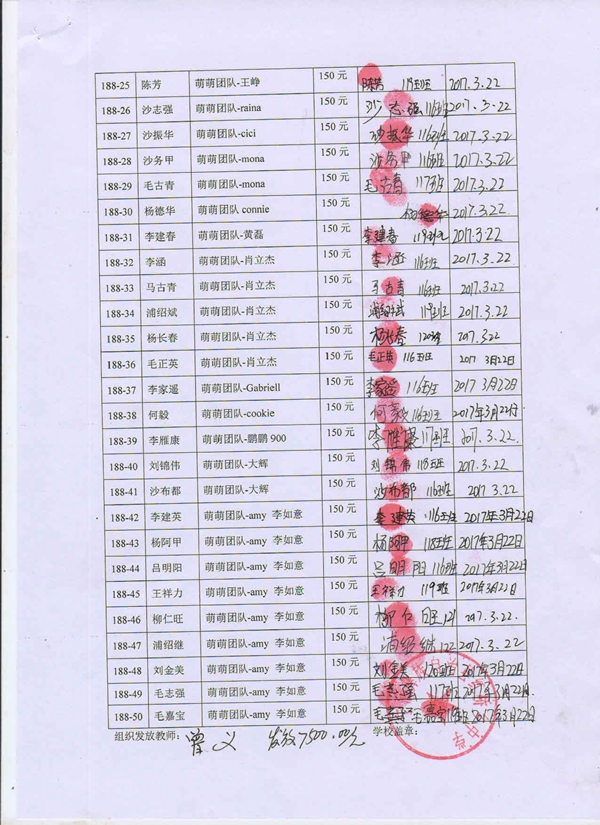 188-25 陈芳 萌萌团队-王峥 150 元 陈芳 119班 2017.3.22
188-26 沙志强 萌萌团队-raina 150 元 沙志强 116班 2017.3.22
188-27 沙振华 萌萌团队-cici 150 元 沙振华 116班 2017.3.22
188-28 沙务甲 萌萌团队-mona 150 元 沙务甲 116班 2017.3.22
188-29 毛古青 萌萌团队-mona 150 元 毛古青 117班 2017.3.22
188-30 杨德华 萌萌团队 connie 150 元 杨德华 2017.3.22
188-31 李建春 萌萌团队-黄磊 150 元 李建春 119班 2017.3.22
188-32 李涵 萌萌团队-肖立杰 150 元 李涵 116班 2017.3.22
188-33 马古青 萌萌团队-肖立杰 150 元 马古青 116班 2017.3.22
188-34 浦绍斌 萌萌团队-肖立杰 150 元 浦绍斌 119班 2017.3.22
188-35 杨长春 萌萌团队-肖立杰 150 元 杨长春 120 2017.3.22
188-36 毛正英 萌萌团队-肖立杰 150 元 毛正英 116班 2017 3月22日
188-37 李家遥 萌萌团队-Gabriell 150 元 李家遥 116班 2017 3月22日
188-38 何毅 萌萌团队-cookie 150 元 何毅 116班 2017年3月22日
188-39 李雁康 萌萌团队-鹏鹏 900 150 元 李雁康 117班 2017.3.22
188-40 刘锦伟 萌萌团队-大辉 150 元 刘锦伟 118班 2017.3.22
188-41 沙布都 萌萌团队-大辉 150 元 沙布都 116班 2017 3.22
188-42 李建英 萌萌团队-amy 李如意 150 元 李建英 116班 2017年3月22日
188-43 杨阿甲 萌萌团队-amy 李如意 150 元 杨阿甲 118班 2017年3月22日
188-44 吕明阳 萌萌团队-amy 李如意 150 元 吕明阳 116班 2017年3月22日
188-45 王祥力 萌萌团队-amy 李如意 150 元 王祥力 119班 2017年3月22日
188-46 柳仁旺 萌萌团队-amy 李如意 150 元 柳仁旺 121 2017.3.22.
188-47 浦绍继 萌萌团队-amy 李如意 150 元 浦绍继 122 2017.3.22
188-48 刘金美 萌萌团队-amy 李如意 150 元 刘金美 120班 2017年3月22日
188-49 毛志强 萌萌团队-amy 李如意 150 元 毛志强 117班 2017年3月22日
188-50 毛嘉宝 萌萌团队-amy 李如意 150 元 毛嘉宝 2017年3月22日
组织发放教师： 曾义 发放7500.00元 学校盖章：